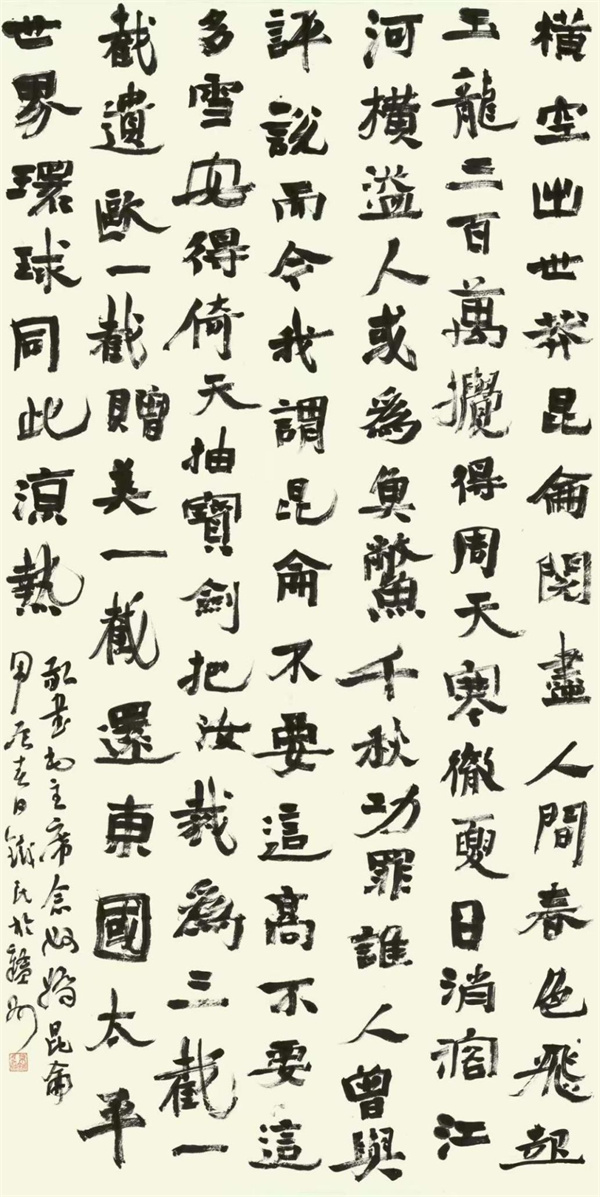 橫空出世莽昆侖閱盡人間春色飛起
玉龍三百萬攪得周天寒徹夏日消溶江
河橫溢人或為魚鱉千秋功罪誰人曾與
評說而今我謂昆侖不要這高不要這
多雪安得倚天抽寶劍把汝裁為三截一
截遺歐一截贈美一截還東國太平
世界環球同此涼熱
敬書毛主席念奴嬌昆侖
甲辰春日鐵民於贛州